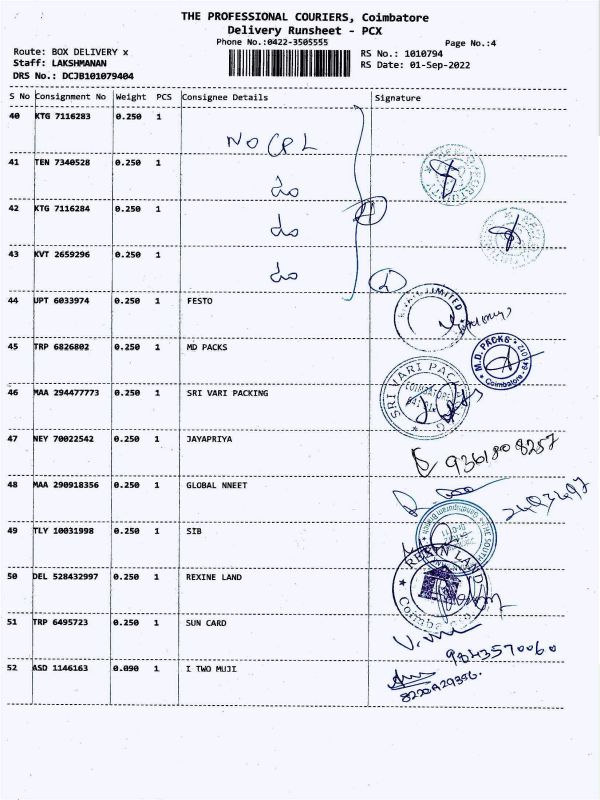 THE PROFESSIONAL COURIERS, Coimbatore
Delivery Runsheet - PCX
Phone No.:0422-3505555 Page No.:4
Route: BOX DELIVERY x RS No.: 1010794
Staff: LAKSHMANAN RS Date: 01-Sep-2022
DRS No.: DCJB101079404
S No Consignment No Weight PCS Consignee Details Signature
40 KTG 7116283 0.250 1
NO CPL
41 TEN 7340528 0.250 1
do
42 KTG 7116284 0.250 1
do
43 KVT 2659296 0.250 1
do
44 UPT 6033974 0.250 1 FESTO
LIMITED
45 TRP 6826802 0.250 1 MD PACKS
M.D. PACKS
Coimbatore
46 MAA 294477773 0.250 1 SRI VARI PACKING
SRI VARI PACKING
COIMBATORE
47 NEY 70022542 0.250 1 JAYAPRIYA
9361808257
48 MAA 290918356 0.250 1 GLOBAL NNEET
49 TLY 10031998 0.250 1 SIB
50 DEL 528432997 0.250 1 REXINE LAND
REXIN LAND
51 TRP 6495723 0.250 1 SUN CARD
9843570060
52 ASD 1146163 0.090 1 I TWO MUJI